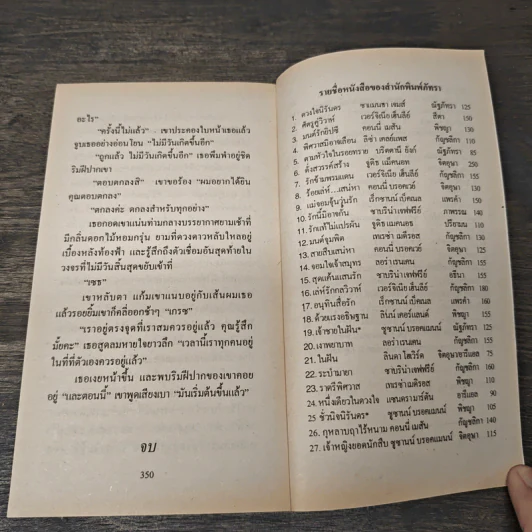 อะไร"
"ครั้งนี้ไม่แล้ว" เขาประคองใบหน้าเธอแล้ว
จูบเธออย่างอ่อนโยน "ไม่มีวันเกิดขึ้นอีก"
"ถูกแล้ว ไม่มีวันเกิดขึ้นอีก" เธอพึมพำอยู่ชิด
ริมฝีปากเขา
"ตอบตกลงสิ" เขาขอร้อง "ผมอยากได้ยิน
คุณตอบตกลง"
"ตกลงค่ะ ตกลงสำหรับทุกอย่าง"
เธอกอดเขาแน่นท่ามกลางบรรยากาศยามเช้าที่
มีกลิ่นดอกไม้หอมกรุ่น ยามที่ดวงดาวหลับใหลอยู่
เบื้องหลังท้องฟ้า และรู้สึกถึงตัวเชื่อมอันสุดท้ายใน
วงจรที่ไม่มีวันสิ้นสุดขยับเข้าที่
"เซธ"
เขาหลับตา แก้มเขาแนบอยู่กับเส้นผมเธอ
แล้วรอยยิ้มเขาก็คลี่ออกช้าๆ "เกรซ"
"เราอยู่ตรงจุดที่เราสมควรอยู่แล้ว คุณรู้สึก
มั้ยคะ" เธอสูดลมหายใจยาวลึก "เวลานี้เราทุกคนอยู่
ในที่ที่ตัวเองควรอยู่แล้ว"
เธอเงยหน้าขึ้น และพบริมฝีปากของเขาคอย
อยู่ "และตอนนี้" เขาพูดเสียงเบา "มันเริ่มต้นขึ้นแล้ว"
จบ
350
รายชื่อหนังสือของสำนักพิมพ์ภัทรา
1. ดวงใจนิรันดร ซาแมนธา เจมส์ ณัฐภัทรา 125
2. ศัตรูคู่วิวาห์ เวอร์จิเนีย เฮ็นลีย์ สีตา 150
3. มนต์รักยิปซี คอนนี่ เมสัน พิชญา 130
4. พิศวาสมิอาจเลือน ลิซ่า เคลย์แพส กัญชลิกา 110
5. ตามหัวใจในรอยทราย บริตตานี ยังก์ ณัฐภัทรา 85
6. ดั่งสวรรค์สร้าง จูดิธ แม็คนอท จิตอุษา 250
7. รักข้ามพรมแดน เวอร์จิเนีย เฮ็นลีย์ กัญชลิกา 155
8. ร้อยเล่ห์...เสน่หา คอนนี่ บรอคเวย์ จิตอุษา 150
9. แม่จอมจุ้นวุ่นรัก เร็กซานน์ เบ็คเนล แพรดำ 130
10. รักนี้มิอาจกั้น ซาบริน่า เจฟฟรีย์ ภาพรรณ 140
11. รักแท้ไม่แปรผัน จูดิธ แมคนอธ ปรียามน 110
12. มนต์จุมพิต เทเรซ่า เมดิรอส กัญชลิกา 110
13. สายสืบเสน่หา คอนนี่ บรอคเวย์ จิตอุษา 125
14. จอมใจเจ้าสมุทร ลอร่า เรนเดน กัญชลิกา 125
15. สุดแค้นแสนรัก ซาบริน่า เจฟฟรีย์ อธีนา 155
16. เล่ห์รักกลวิวาห์ เวอร์จิเนีย เฮ็นลีย์ กัญชลิกา 180
17. อนุทินสื่อรัก เร็กซานน์ เบ็คเนล แพรดำ 160
18. ด้วยแรงอธิษฐาน ลินน์ เคอร์แลนด์ กัญชลิกา 155
19. เจ้าชายในฝัน* ซูซานน์ บรอคแมนน์ ณัฐภัทรา 125
20. เงาพยาบาท ลอร่า เรนเดน กัญชลิกา 135
21. ในฝัน ลินดา โฮวิร์ด จิตอุษา/อารีแอล 75
22. ระบำมายา ซาบริน่า เจฟฟรีย์ กัญชลิกา 155
23. ราตรีพิศวาส เทเรซ่า เมดิรอส พิชญา 110
24. หนึ่งเดียวในดวงใจ แซนดรา มาร์ตัน อารีแอล 90
25 ชั่วนิจนิรันดร* ซูซานน์ บรอคแมนน์ พิชญา 105
26. กุหลาบฤาไร้หนาม คอนนี่ เมสัน กัญชลิกา 140
27. เจ้าหญิงยอดนักสืบ ซูซานน์ บรอคแมนน์ จิตอุษา 115